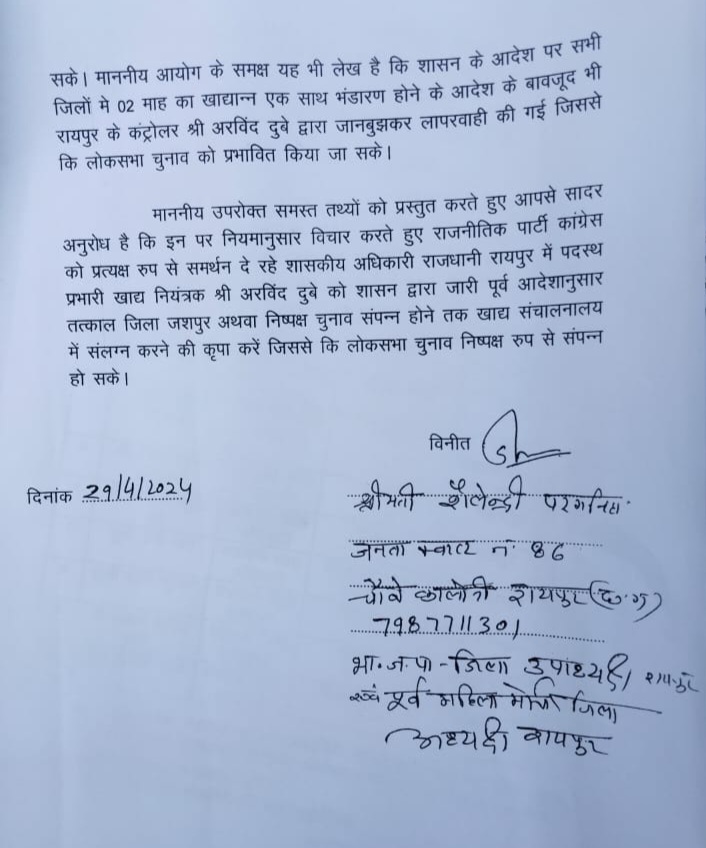 सके। माननीय आयोग के समक्ष यह भी लेख है कि शासन के आदेश पर सभी
जिलों मे 02 माह का खाद्यान्न एक साथ भंडारण होने के आदेश के बावजूद भी
रायपुर के कंट्रोलर श्री अरविंद दुबे द्वारा जानबुझकर लापरवाही की गई जिससे
कि लोकसभा चुनाव को प्रभावित किया जा सके।
माननीय उपरोक्त समस्त तथ्यों को प्रस्तुत करते हुए आपसे सादर
अनुरोध है कि इन पर नियमानुसार विचार करते हुए राजनीतिक पार्टी कांग्रेस
को प्रत्यक्ष रुप से समर्थन दे रहे शासकीय अधिकारी राजधानी रायपुर में पदस्थ
प्रभारी खाद्य नियंत्रक श्री अरविंद दुबे को शासन द्वारा जारी पूर्व आदेशानुसार
तत्काल जिला जशपुर अथवा निष्पक्ष चुनाव संपन्न होने तक खाद्य संचालनालय
में संलग्न करने की कृपा करें जिससे कि लोकसभा चुनाव निष्पक्ष रुप से संपन्न
हो सके।
विनीत
दिनांक 29/4/2024
श्रीमती शैलेन्द्री परगनिहा
जनता क्वाटर नं. 86
चौबे कालोनी रायपुर (छ.ग)
7987711301
भा.ज.पा - जिला उपाध्यक्ष रायपुर
एवं पूर्व महिला मोर्चा जिला
अध्यक्ष रायपुर